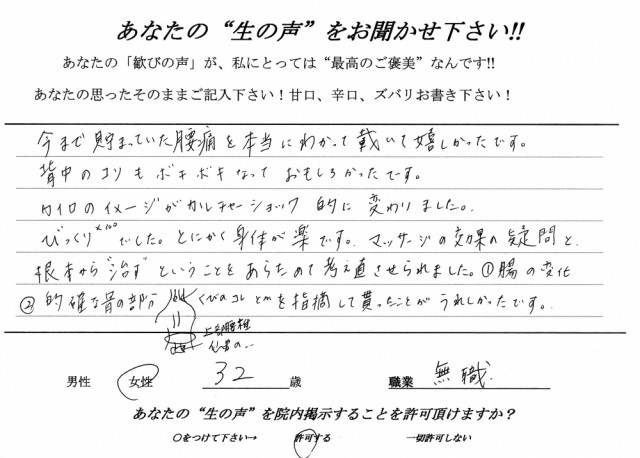 あなたの“生の声”をお聞かせ下さい!!
あなたの「歓びの声」が、私にとっては“最高のご褒美”なんです!!
あなたの思ったそのままご記入下さい！甘口、辛口、ズバリお書き下さい！
今まで貯まっていた腰痛を本当にわかって戴いて嬉しかったです。
背中のコリもボキボキなっておもしろかったです。
カイロのイメージがカルチャーショック的に変わりました。
びっくり×100でした。とにかく身体が楽です。マッサージの効果の疑問と、
根本から“治す”ということをあらためて考え直させられました。①腸の変化
②的確な骨の部分 くびのコレとかを指摘して貰ったことがうれしかったです。
上部腰椎
仙骨の…
男性 女性 32 歳 職業 無職
あなたの“生の声”を院内掲示することを許可頂けますか？
○をつけて下さい→ 許可する 一切許可しない